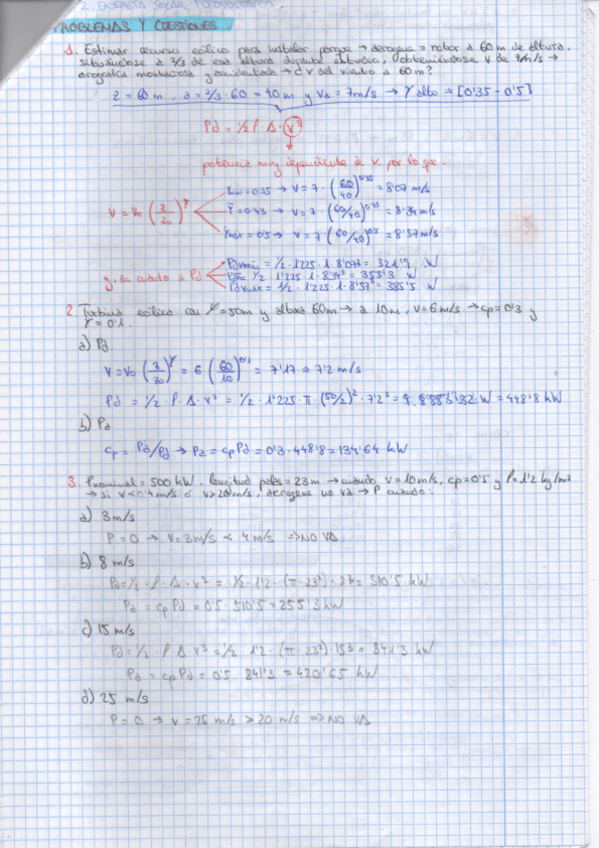 2. ENERGÍA SOLAR FOTOVOLTAICA
PROBLEMAS Y CUESTIONES
1. Estimar recurso eólico para instalar parque → aerogen = rotor a 60 m de altura.
situándose a 2/3 de esa altura, obteniéndose V de 7m/s →
orografía montañosa y → d V del viento a 60m?
z = 60 m, a = 2/3 · 60 = 40 m y Va = 7m/s → γ alto → [0'35 - 0'5]
Pd = 1/2 ρ · A · v³
potencia muy dependiente de v. por lo que:
V = V0 (z/z0)^γ
γmin = 0'35 → V = 7 · (60/40)^0'35 = 8'07 m/s
γ̄ = 0'43 → V = 7 · (60/40)^0'43 = 8'34 m/s
γmax = 0'5 → V = 7 · (60/40)^0'5 = 8'57 m/s
y en cuanto a Pd
Pdmin = 1/2 · 1'225 · 1 · 8'07³ = 321'9 W
Pd = 1/2 · 1'225 · 1 · 8'34³ = 355'3 W
Pdmax = 1/2 · 1'225 · 1 · 8'57³ = 385'5 W
2. Turbina eólica con = 50m y altura 60m → a 10m, v = 6m/s → cp = 0'3 y
γ = 0'1.
a) Pd
V = V0 (z/z0)^γ = 6 (60/10)^0'1 = 7'17 ≈ 7'2 m/s
Pd = 1/2 · ρ · A · v³ = 1/2 · 1'225 · π · (50/2)² · 7'2³ = W = 448'8 kW
b) Pa
cp = Pa/Pd → Pa = cp Pd = 0'3 · 448'8 = 134'64 kW
3. Pnominal = 500 kW. longitud palas = 23m → cuando v = 10m/s, cp = 0'5 y ρ = 1'2 kg/m³
→ si v < 4m/s o v > 20m/s, aerogen no va → P cuando:
a) 3 m/s
P = 0 → v = 3m/s < 4 m/s ⇒ NO VA
b) 8 m/s
Pd = 1/2 · ρ · A · v³ = 1/2 · 1'2 · (π · 23²) · 8³ = 510'5 kW
Pa = cp Pd = 0'5 · 510'5 = 255'3 kW
c) 15 m/s
Pd = 1/2 · ρ · A · v³ = 1/2 · 1'2 · (π · 23²) · 15³ = 841'3 kW
Pa = cp Pd = 0'5 · 841'3 = 420'65 kW
d) 25 m/s
P = 0 → v = 25 m/s > 20 m/s ⇒ NO VA